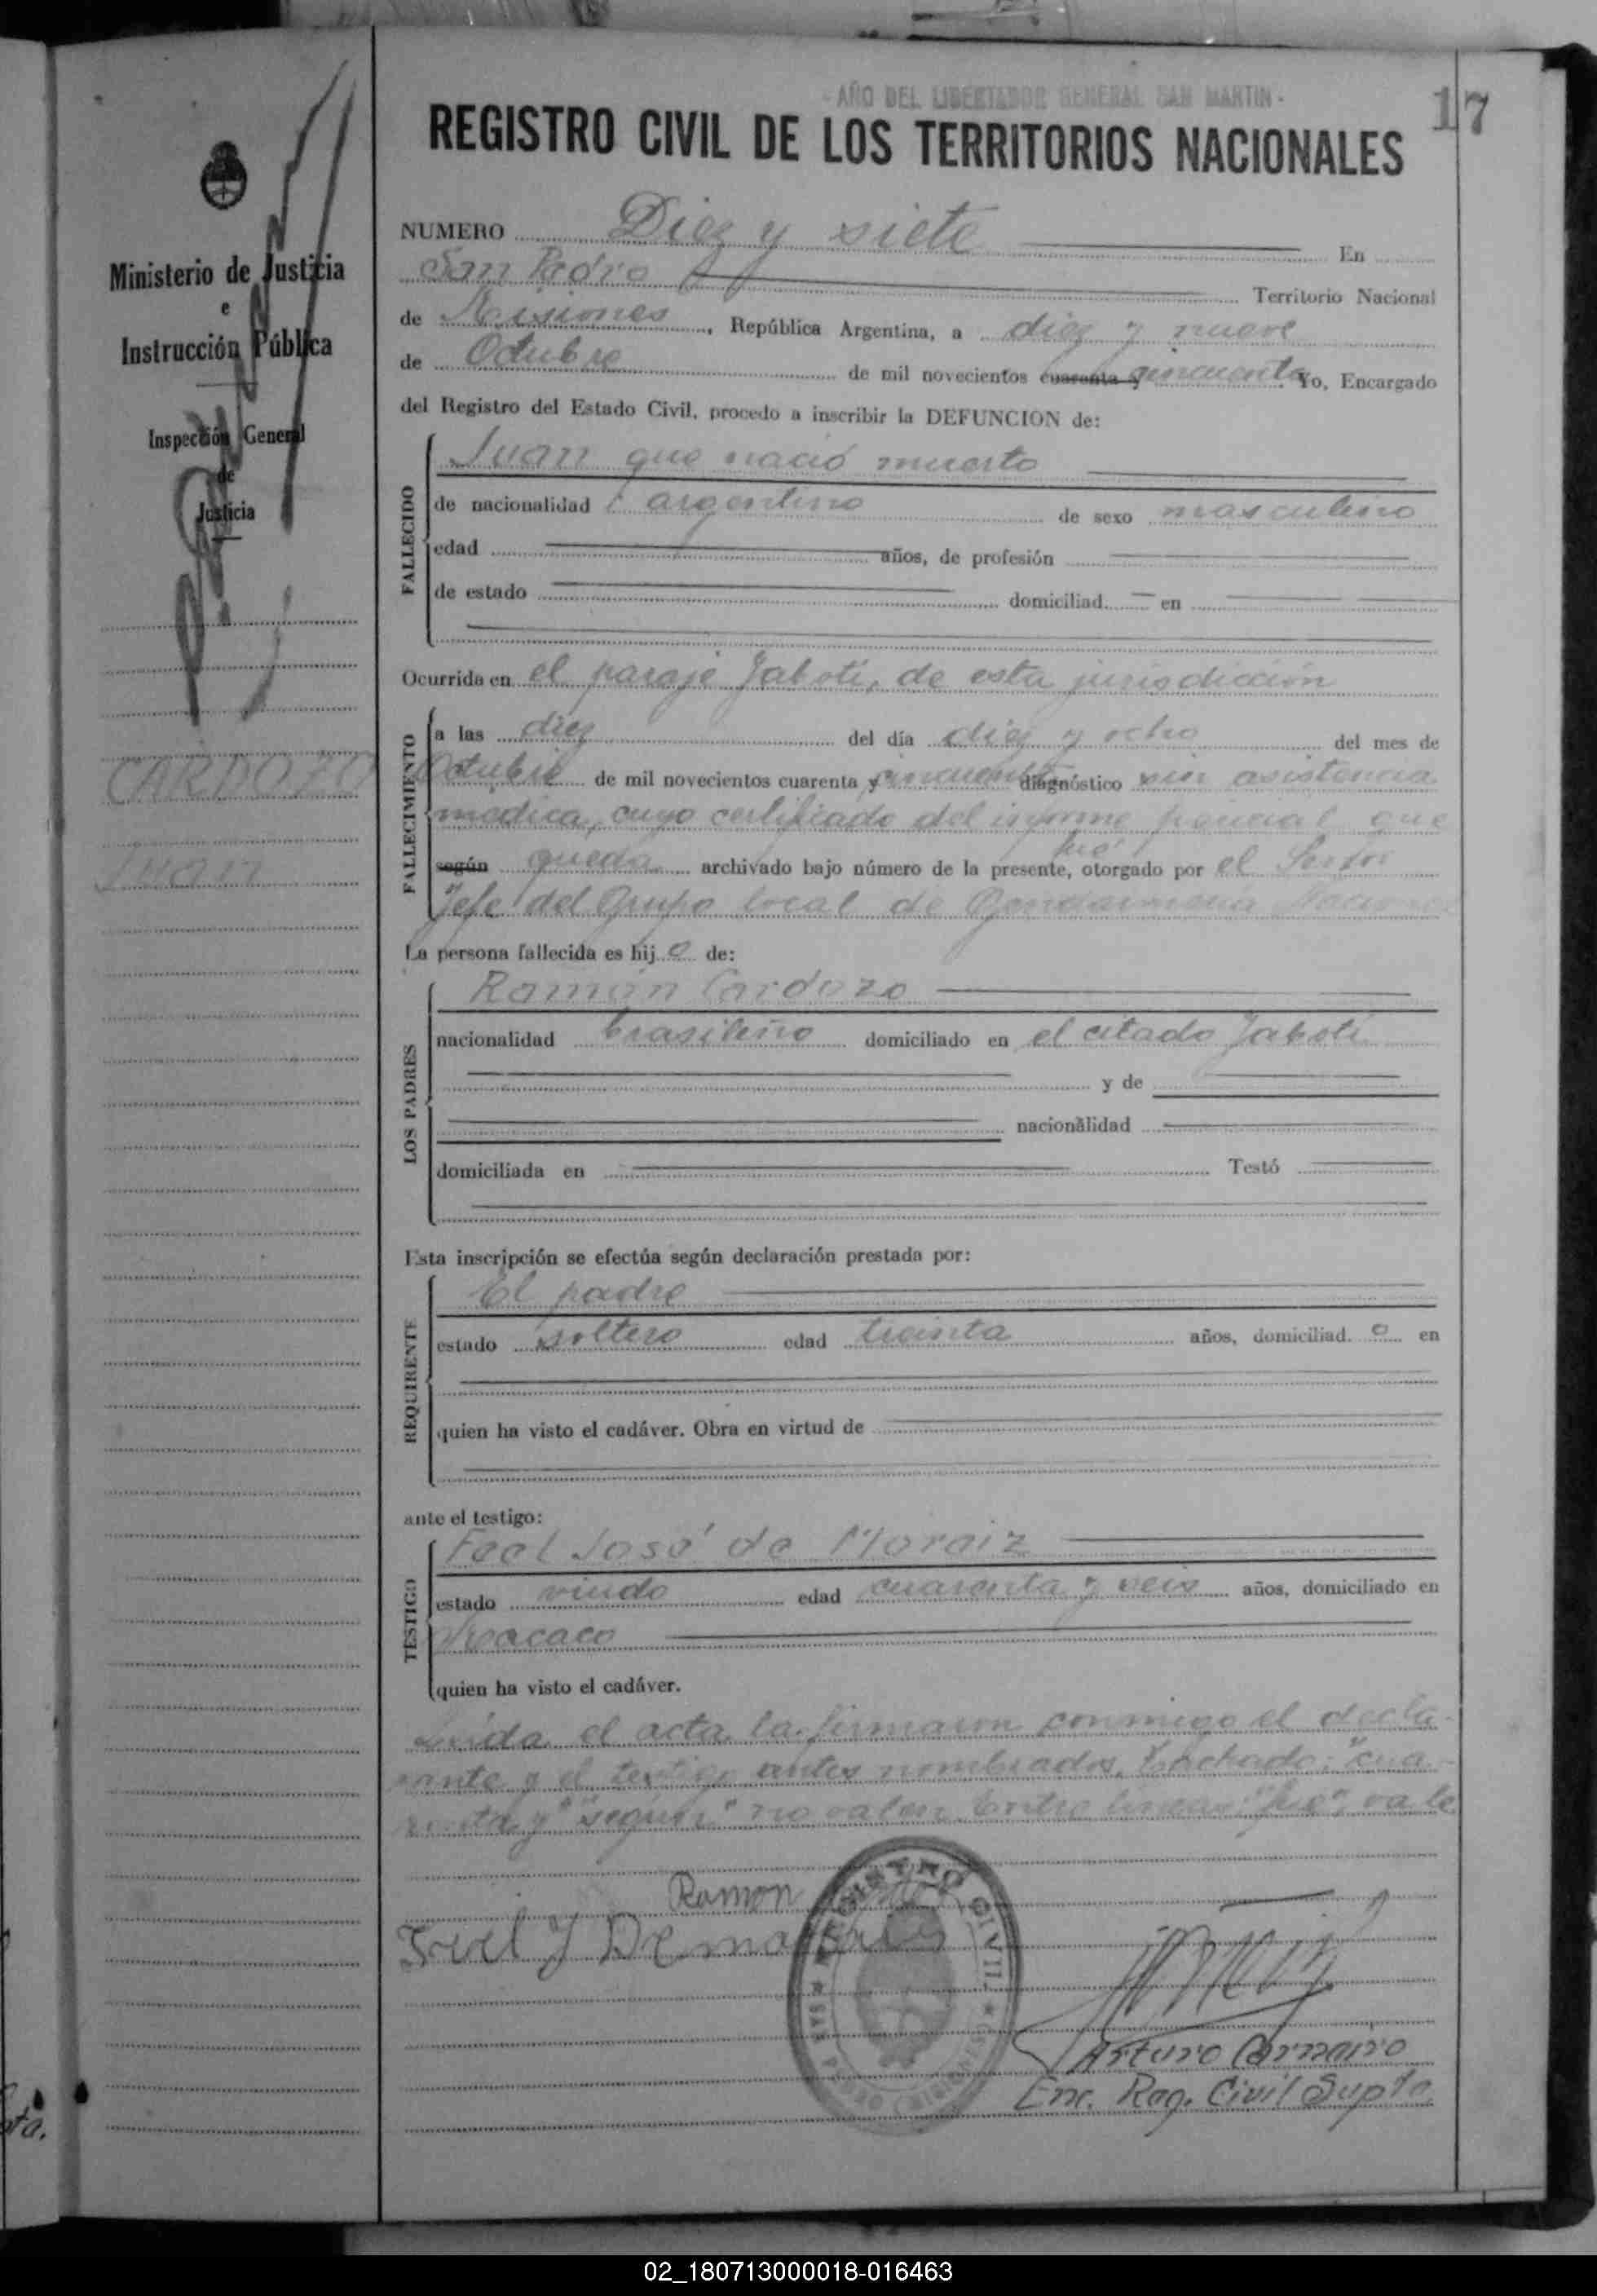 - AÑO DEL LIBERTADOR GENERAL SAN MARTIN -
17
REGISTRO CIVIL DE LOS TERRITORIOS NACIONALES
Ministerio de Justicia
e
Instrucción Pública
Inspección General
de
Justicia
CARDOZO
Juan
NUMERO Diez y siete En
San Pedro Territorio Nacional
de Misiones, República Argentina, a diez y nueve
de Octubre de mil novecientos cuarenta y cincuenta Yo, Encargado
del Registro del Estado Civil, procedo a inscribir la DEFUNCION de:
FALLECIDO
Juan que nació muerto
de nacionalidad argentino de sexo masculino
edad años, de profesión
de estado domiciliad en
Ocurrida en el paraje Jabotí, de esta jurisdicción
FALLECIMIENTO
a las diez del día diez y ocho del mes de
Octubre de mil novecientos cuarenta y cincuenta diagnóstico sin asistencia
médica, cuyo certificado del informe policial que
fué
según queda archivado bajo número de la presente, otorgado por el Señor
Jefe del Grupo local de Gendarmería Nacional
La persona fallecida es hijo de:
LOS PADRES
Ramón Cardozo
nacionalidad brasileño domiciliado en el citado Jabotí
y de
nacionalidad
domiciliada en Testó
Esta inscripción se efectúa según declaración prestada por:
REQUIRENTE
El padre
estado soltero edad treinta años, domiciliado en
quien ha visto el cadáver. Obra en virtud de
ante el testigo:
TESTIGO
José de Moraiz
estado viudo edad cuarenta y seis años, domiciliado en
quien ha visto el cadáver.
Leída el acta la firmaron conmigo el decla-
rante y el testigo antes nombrados. Tachado: "cua-
renta y" "según" no valen. Entre líneas: "fué" vale
Ramon
REGISTRO CIVIL
Arturo
Enc. Reg. Civil Supte
02_180713000018-016463